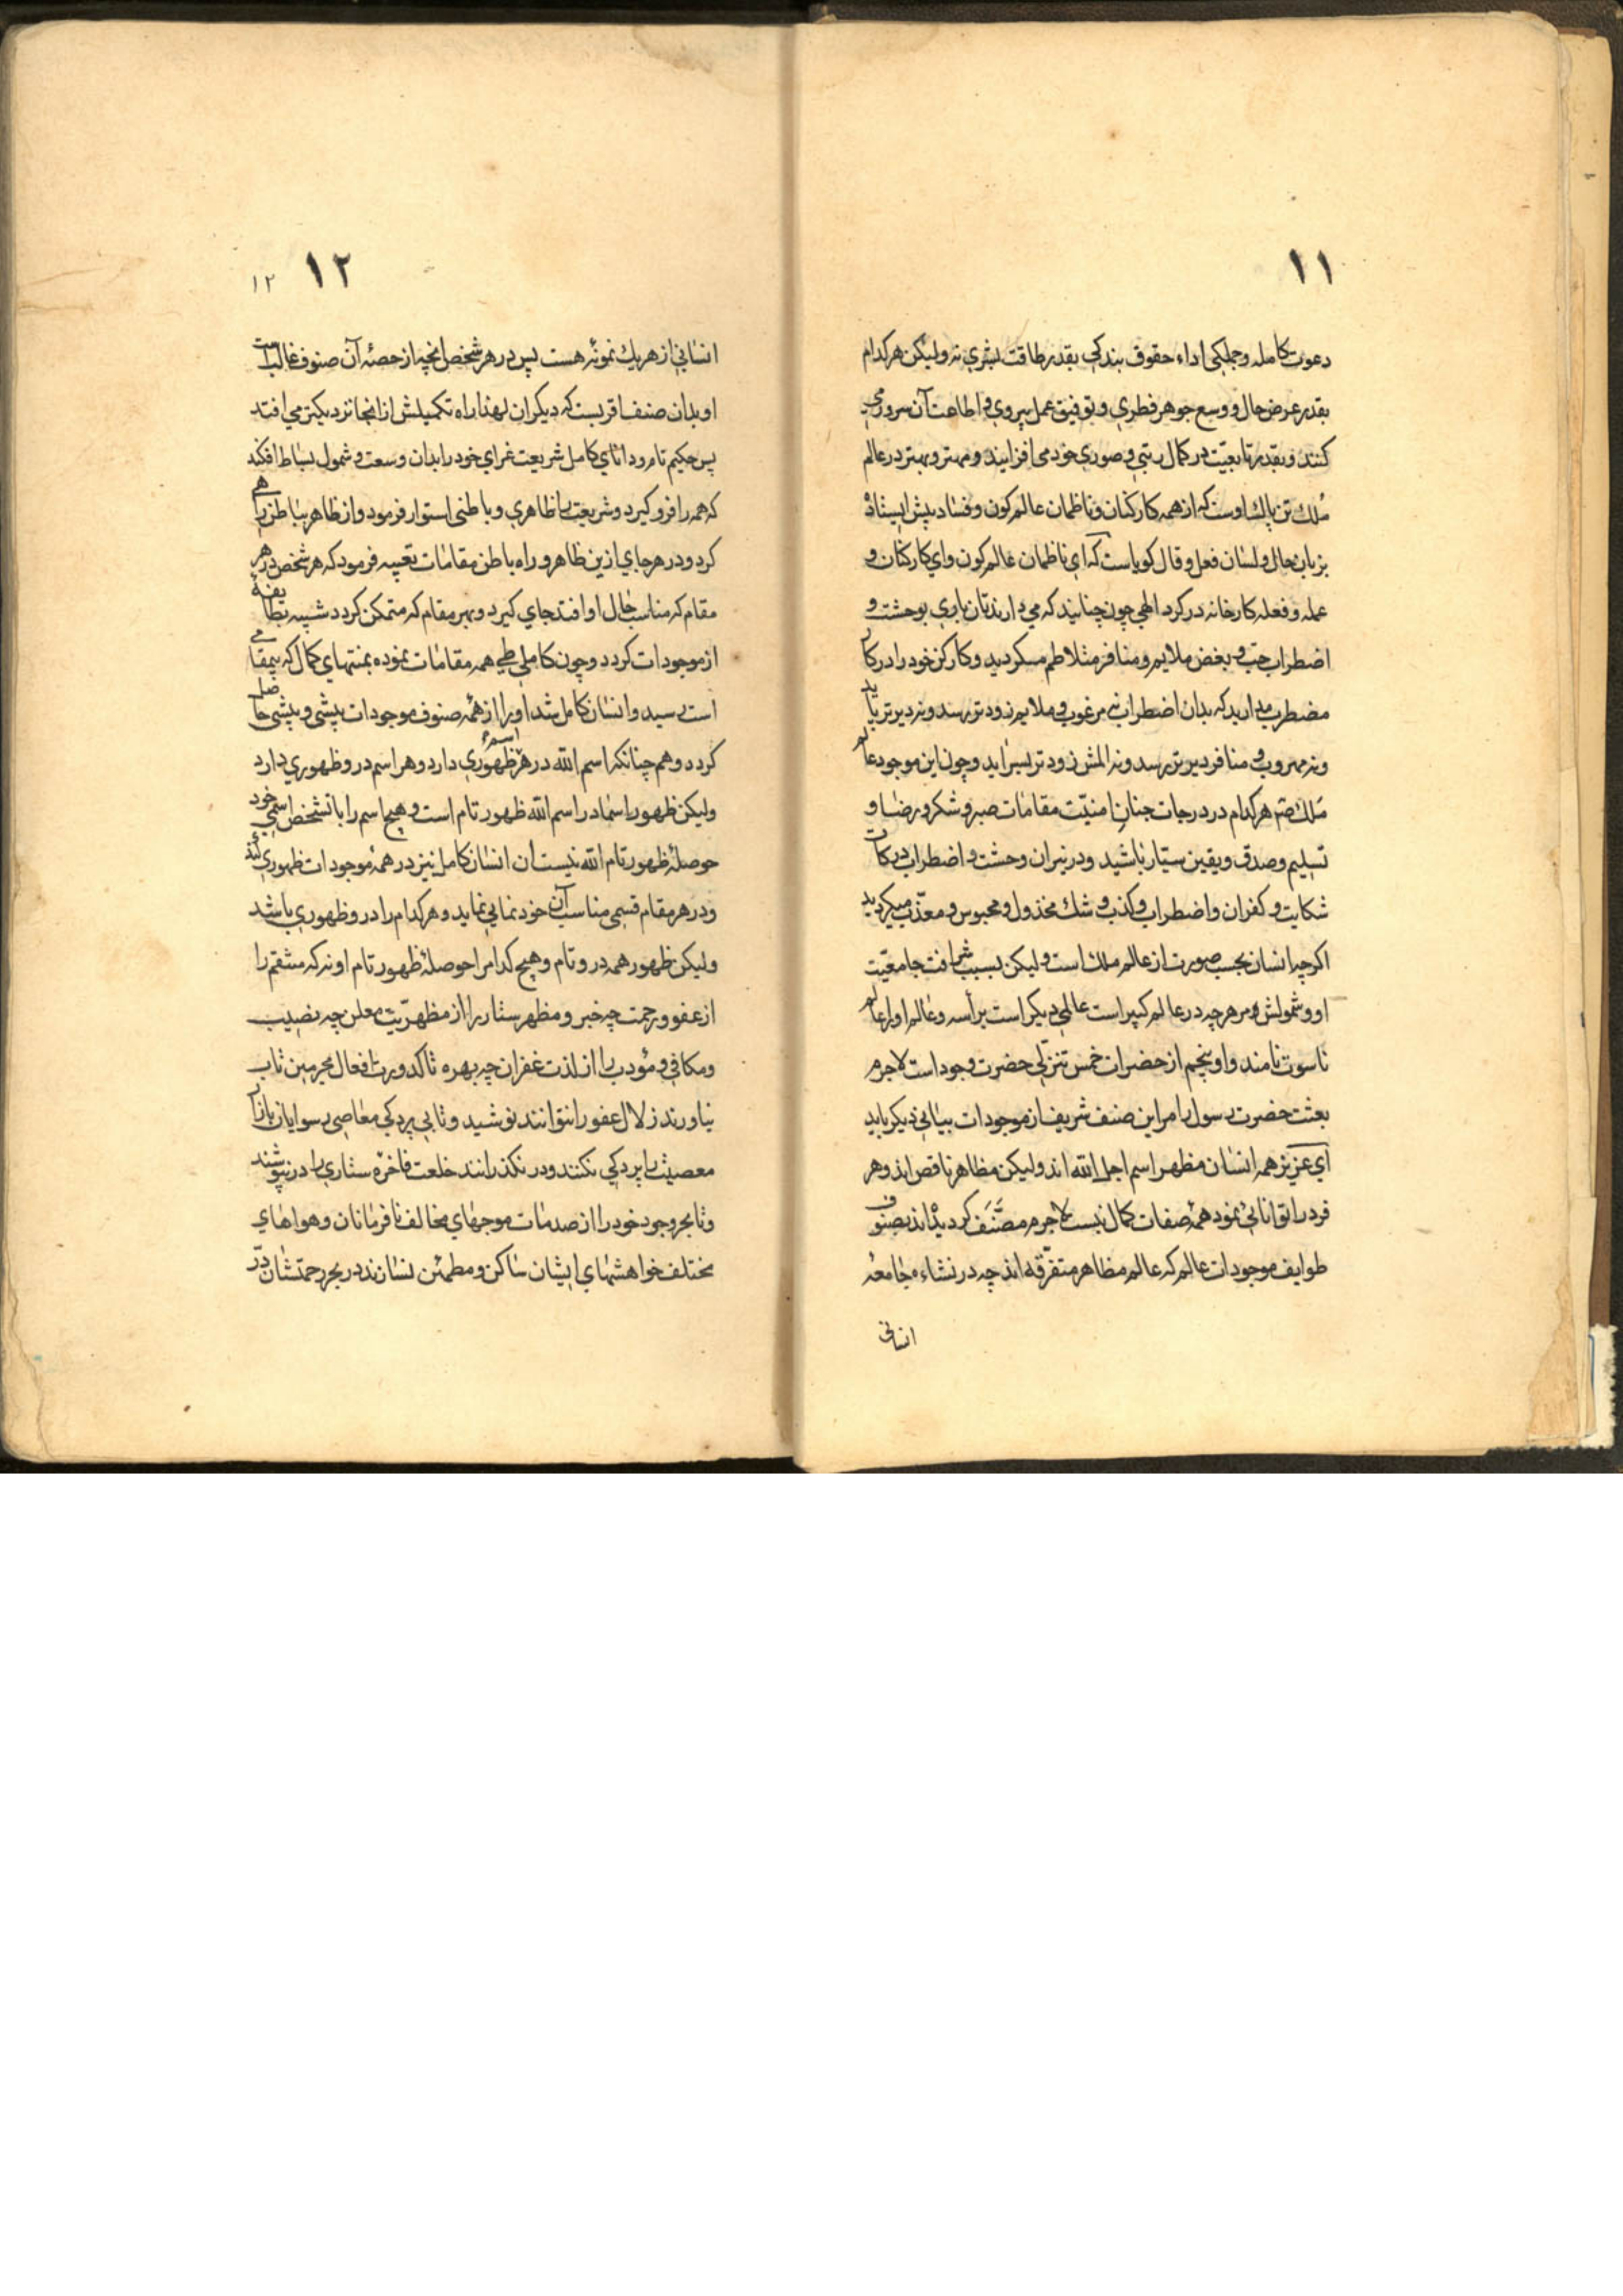 ١١
دعوت کامله و جملکی اداء حقوق بندکی بقدر طاقت بشری نه ولیکن هر کدام
بقدر عرض حال و وسع جوهر فطری و توفیق عمل پیروی و اطاعت آن سرور می
کنند و بقدر تابعیت در کمال رتبی و صوری خود می افزایند و مهتر و بهتر در عالم
ملك تن پاك اوست که از همه کارکنان و ناظمان عالم کون و فساد پیش ایستاده
بزبان حال و لسان فعل و قال کویاست که ای ناظمان عالم کون و ای کارکنان و
عمله و فعله کارخانه در کرد الهی چون چنانید که می دارندتان باری بوحشت و
اضطراب حب و بغض ملایم و منافر متلاطم مسکردید و کارکن خود را در کار
مضطرب مدارید که بدان اضطراب نه مرغوب و ملایم زودتر رسد و نه دیرتر یابد
و نه مهروب و منافر دیرتر رسد و نه المش زودتر بسر اید و چون این موجود عالم
ملك صم هر کدام در درجات جنان امنیّت مقامات صبر و شکر و رضا و
تسلیم و صدق و یقین ستیار باشید و در نیران وحشت و اضطراب درکات
شکایت و کفران و اضطراب و کذب و شك مخذول و محبوس و معذّب میکردید
اکرچه انسان بحسب صورت از عالم ملك است ولیکن بسبب شرافت جامعیّت
او و شمولش و مر هر چه در عالم کبیر است عالمی دیکر است برأسه و عالم او را عالم
ناسوت نامند و او پنجم از حضرات خمس تنزلی حضرت وجود است لاجرم
بعثت حضرت رسول را مر این صنف شریف از موجودات بیانی دیکر باید
ای عزیز همه انسان مظهر اسم اجل الله اند ولیکن مظاهر ناقص اند و هر
فرد را توانائی نمود همهٔ صفات کمال نیست لاجرم مصنّف کردیده اند بصنوف
طوایف موجودات عالم که عالم مظاهر متفرّقه اند چه در نشاء جامعهٔ
انسانی
١٢ ١٢
انسانی از هر یك نمونه هست پس در هر شخص انچه از حصهٔ آن صنوف غالب است
او بدان صنف اقربست که دیکران لهذا راه تکمیلش از انجا نزدیکتر می افتد
پس حکیم تام و دانای کامل شریعت غرای خود را بدان وسعت و شمول بساط افکند
که همه را فرو کیرد و شریعت را ظاهری و باطنی استوار فرمود و از ظاهر بباطن راهی
کرد و در هر جای ازین ظاهر و راه باطن مقامات تعبیه فرمود که هر شخص در هر
مقام که مناسب حال او افتد جای کیرد و بهر مقام که متمکن کردد شبیه بطایفهٔ
از موجودات کردد و چون کاملی طی همه مقامات نموده بمنتهای کمال که بیمقامی
است رسید و انسان کامل شد او را از همهٔ صنوف موجودات پیشی و بیشی حاصل
کردد و هم چنانکه اسم الله در هر اسم ظهوری دارد و هر اسم در و ظهوری دارد
ولیکن ظهور اسما در اسم الله ظهور تام است و هیچ اسم را با تشخص اسمی خود
حوصلهٔ ظهور تام الله نیست ان انسان کامل نیز در همهٔ موجودات ظهوری کند
و در هر مقام قسمی مناسب آن خود نمایی نماید و هر کدام را در و ظهوری باشد
ولیکن ظهور همه در و تام و هیچ کدام را حوصلهٔ ظهور تام او نه که منتقم را
از عفو و رحمت چه خبر و مظهر ستار را از مظهریّت معلن چه نصیب
و مکافی و مؤدب را از لذت غفران چه بهره تا کدورت افعال مجرمین تاب
نیاورند زلال عفو را نتوانند نوشید و تا بی پردکی معاصی رسوایان بازار
معصیت را پردکی نکنند و در نکذرانند خلعت فاخرهٔ ستاری را در نپوشند
و تا بحر وجود خود را از صدمات موجهای مخالف نافرمانان و هواهای
مختلف خواهشهای ایشان ساکن و مطمئن نسازند در بحر رحمتشان درّ